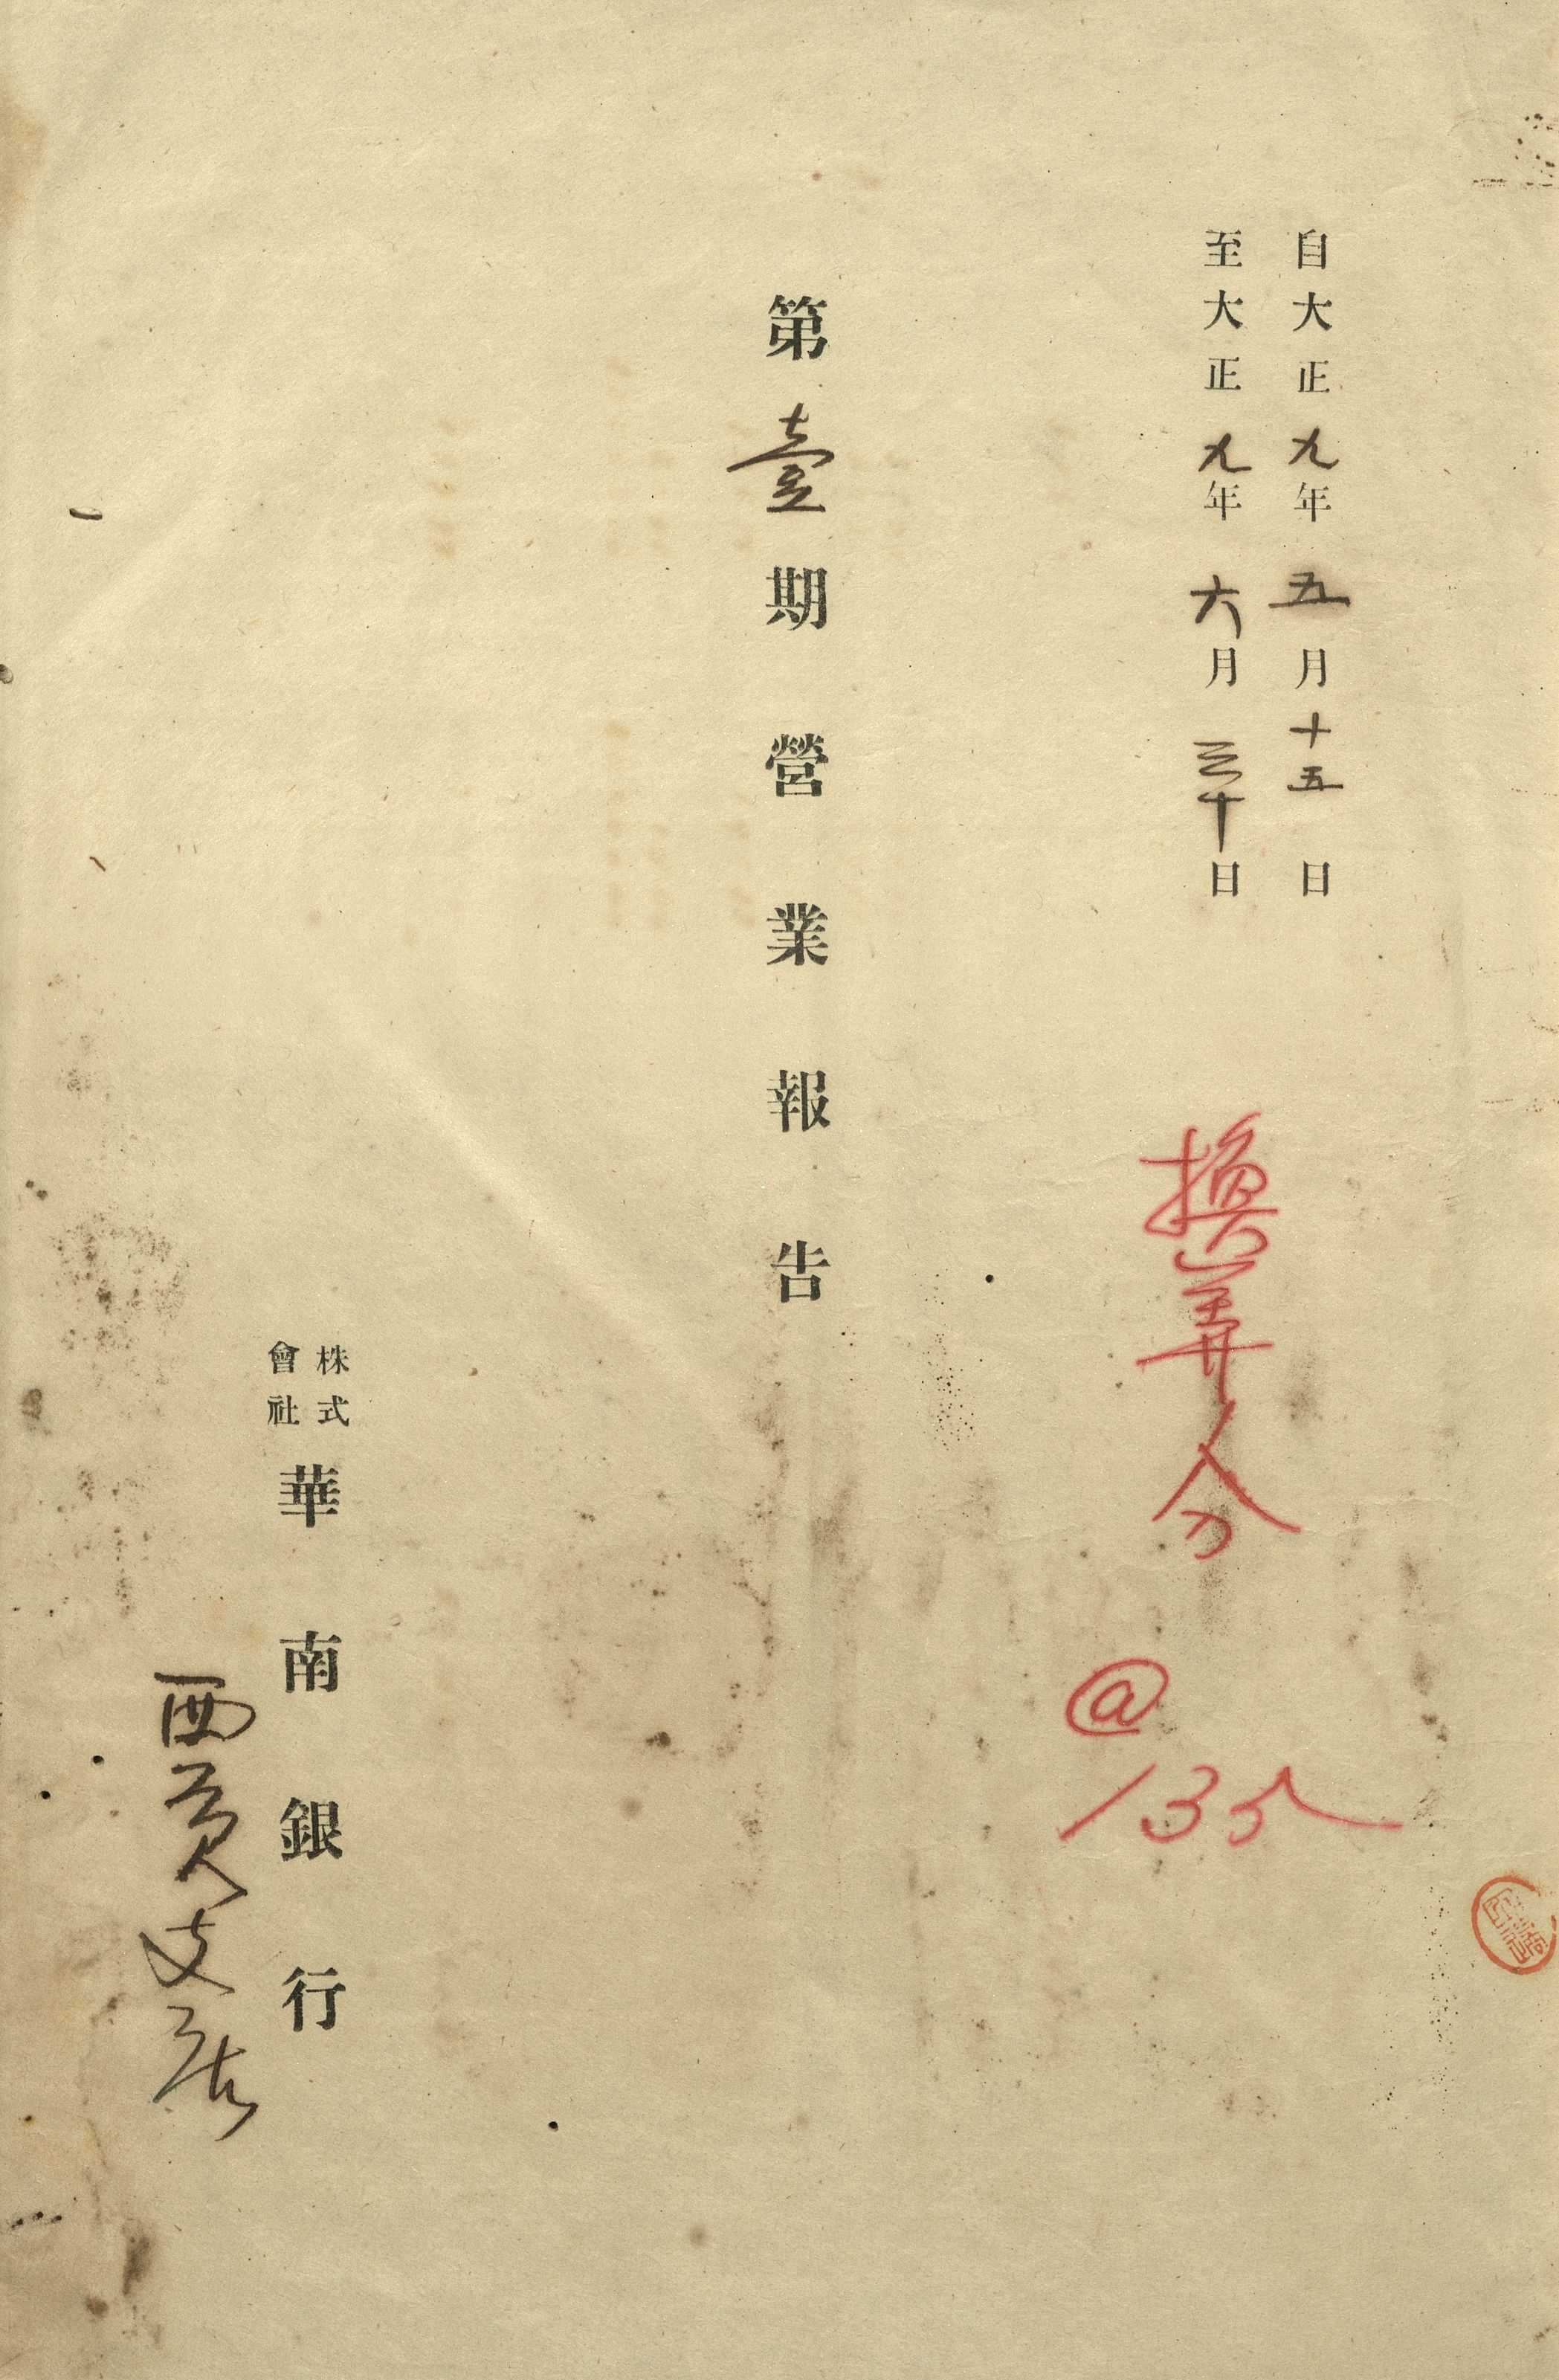 自大正九年五月十五日
至大正九年六月三十日
換算分
@
135
第壹期營業報告
株式會社華南銀行
西貢支店